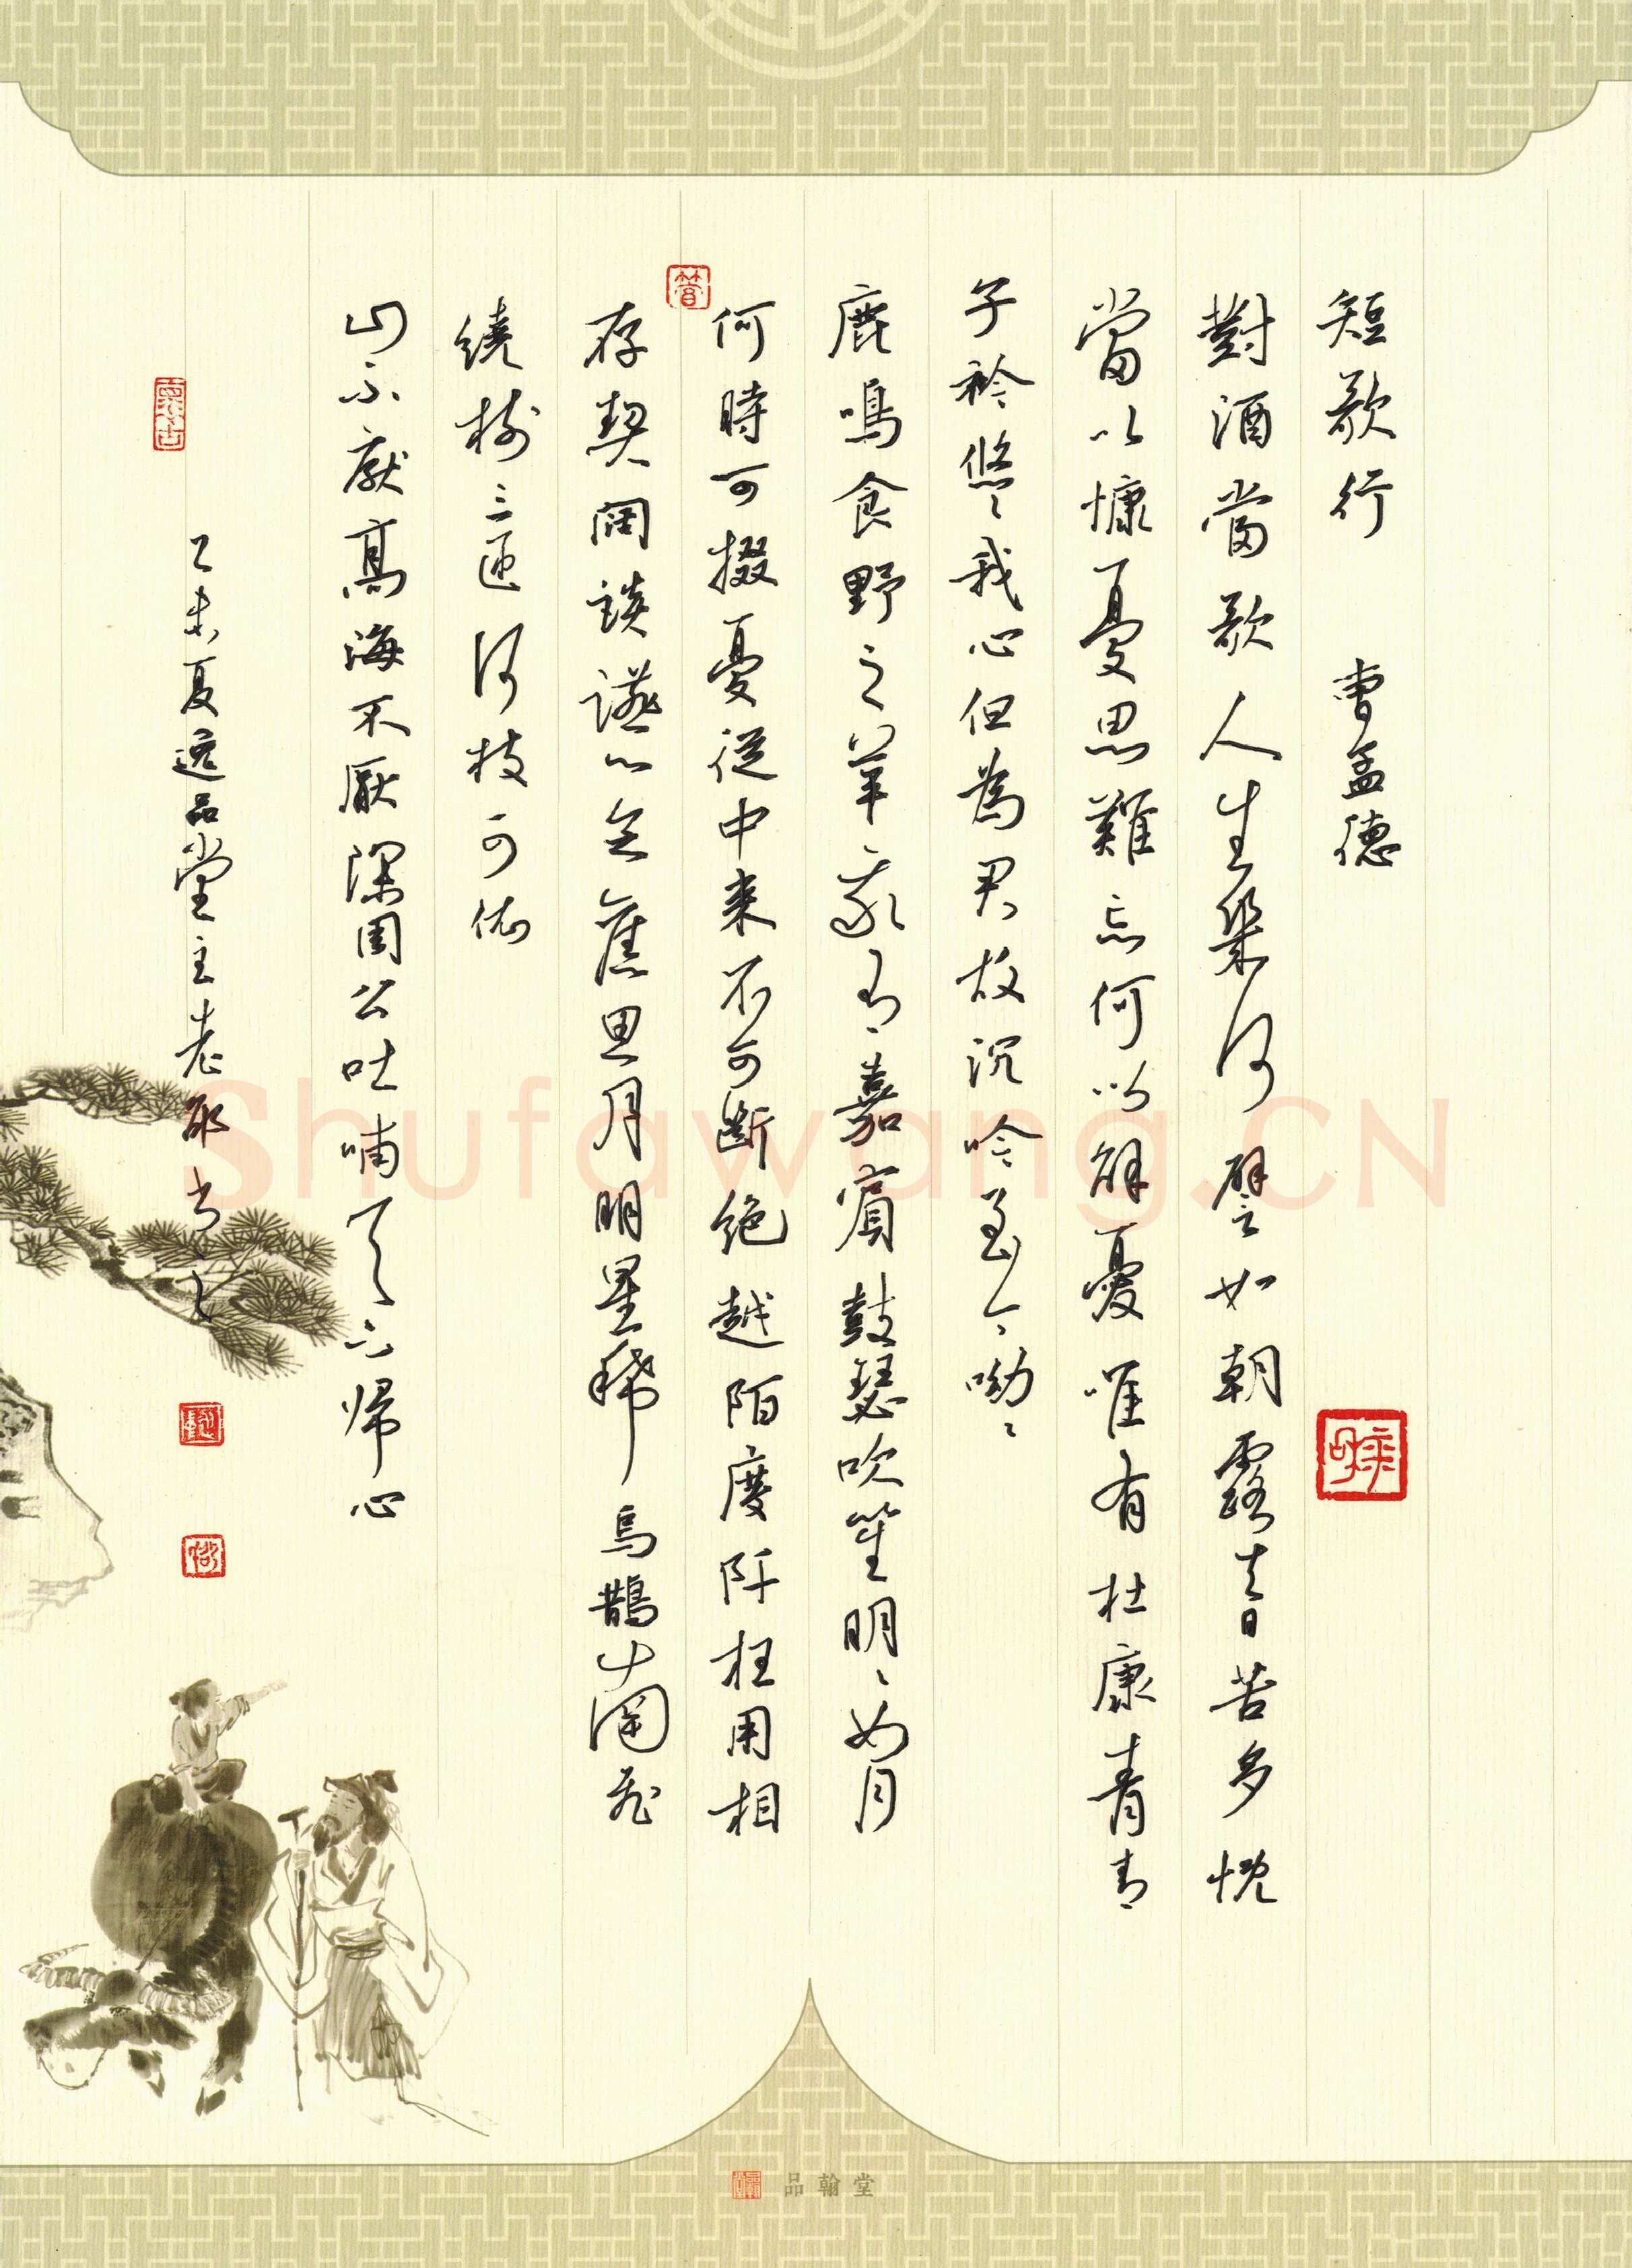 短歌行 曹孟德
對酒當歌人生幾何譬如朝露去日苦多慨
當以慷憂思難忘何以解憂唯有杜康青青
子衿悠〻我心但為君故沉吟至今呦〻
鹿鳴食野之苹我有嘉賓鼓瑟吹笙明〻如月
何時可掇憂從中来不可斷絶越陌度阡枉用相
存契闊談讌心念舊恩月明星稀烏鵲南飛
繞樹三匝何枝可依
山不厭高海不厭深周公吐哺天下帰心
乙未夏逸品堂主老書之
Shufawang.CN
品翰堂